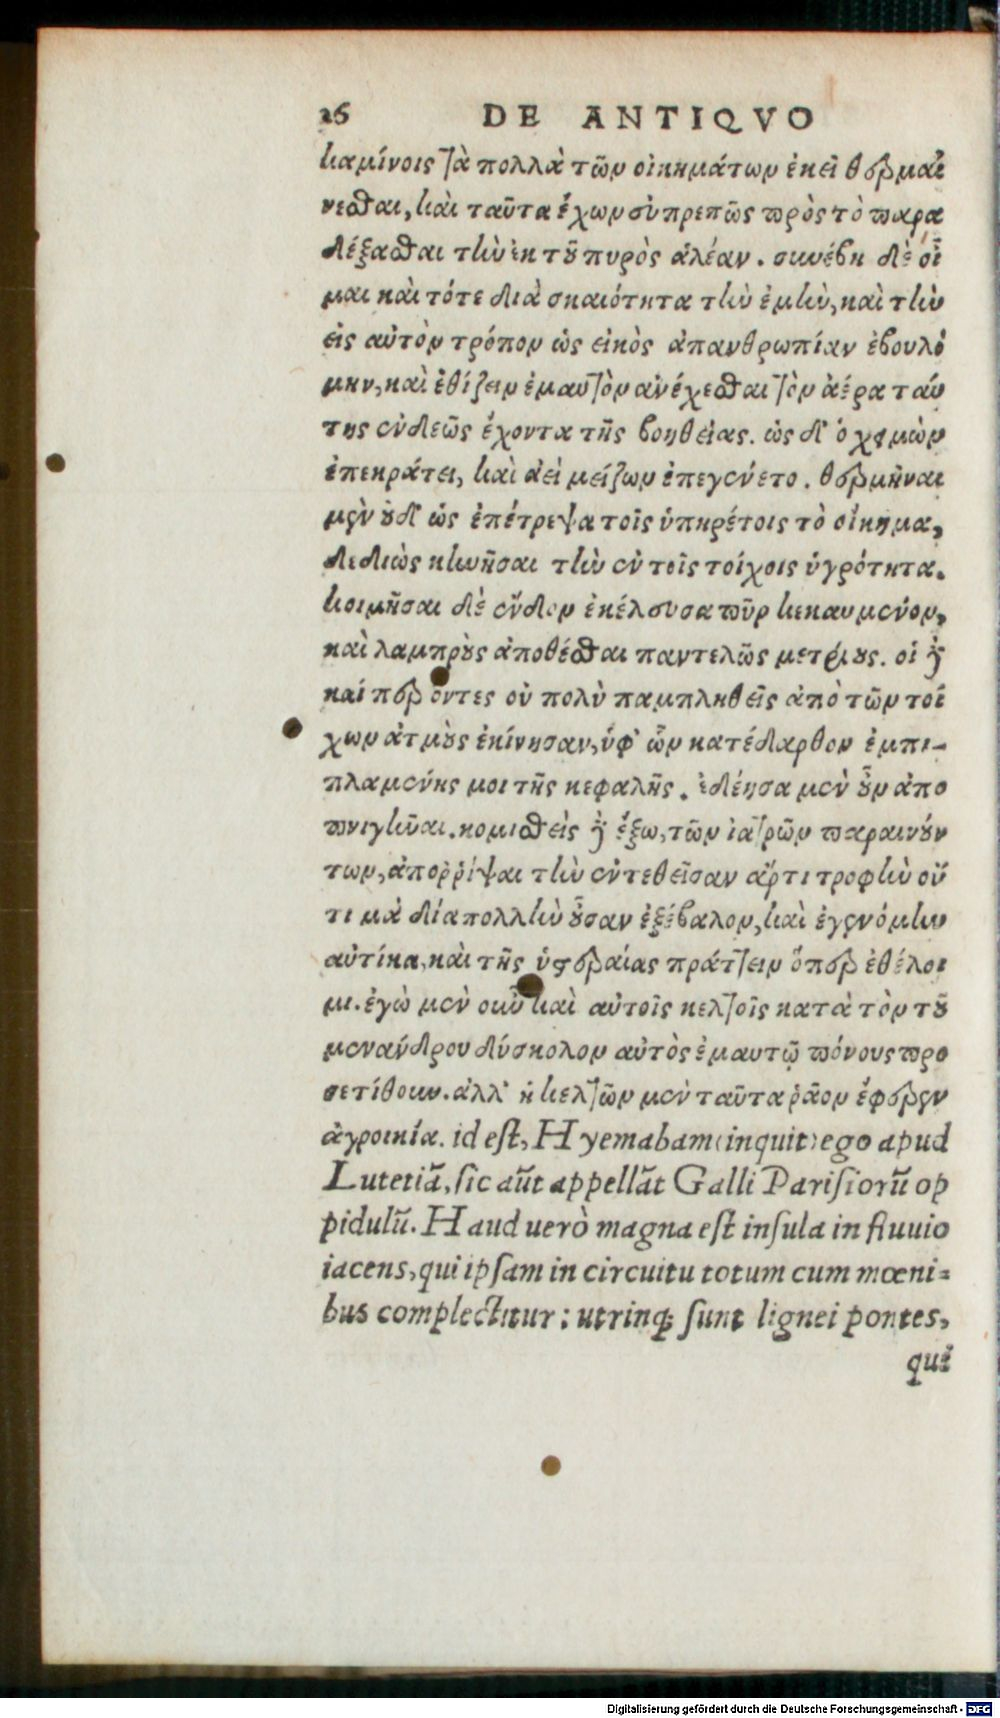 26 DE ANTIQVO
καμίνοις τὰ πολλὰ τῶν οἰκημάτων ἐκεῖ θερμαί
νεσθαι, καὶ ταῦτα ἔχων εὐπρεπῶς πρὸς τὸ παρα
δέξασθαι τὴν ἐκ τοῦ πυρὸς ἀλέαν. συνέβη δὲ οἶ
μαι καὶ τότε διὰ σκαιότητα τὴν ἐμὴν, καὶ τὴν
εἰς αὐτὸν τρόπον ὡς εἰκὸς ἀπανθρωπίαν ἐβουλό
μην, καὶ ἐθίζειν ἐμαυτὸν ἀνέχεσθαι τὸν ἀέρα ταύ
της ἐνδεῶς ἔχοντα τῆς βοηθείας. ὡς δ' ὁ χειμὼν
ἐπεκράτει, καὶ ἀεὶ μείζων ἐπεγένετο. θερμῆναι
μὲν οὐδ' ὡς ἐπέτρεψα τοῖς ὑπηρέτοις τὸ οἴκημα,
δεδιὼς κινῆσαι τὴν ἐν τοῖς τοίχοις ὑγρότητα.
κοιμῆσαι δὲ ἔνδον ἐκέλευσα πῦρ κεκαυμένον,
καὶ λαμπροὺς ἀποθέσθαι παντελῶς μετρίους. οἱ δὲ
καί περ ὄντες οὐ πολὺ παμπληθεῖς ἀπὸ τῶν τοί
χων ἀτμοὺς ἐκίνησαν, ὑφ' ὧν κατέδαρθον ἐμπι-
πλαμένης μοι τῆς κεφαλῆς. ἐδέησα μὲν οὖν ἀπο
πνιγῆναι. κομισθεὶς δὲ ἔξω, τῶν ἰατρῶν παραινούν
των, ἀποῤῥίψαι τὴν ἐντεθεῖσαν ἄρτι τροφὴν οὔ
τι μὰ δία πολλὴν οὖσαν ἐξέβαλον, καὶ ἐγενόμην
αὐτίκα, καὶ τῆς ὑστεραίας πράττειν ὅπερ ἐθέλοι
μι. ἐγὼ μὲν οὖν καὶ αὐτοῖς κελτοῖς κατὰ τὸν τοῦ
μενάνδρου δύσκολον αὐτὸς ἐμαυτῷ πόνους προ
σετίθουν. ἀλλ' ἡ κελτῶν μὲν ταῦτα ῥᾶον ἔφερεν
ἀγροικία. id est, Hyemabam (inquit) ego apud
Lutetiã, sic aũt appellãt Galli Parisiorũ op
pidulũ. Haud uerò magna est insula in fluuio
iacens, qui ipsam in circuitu totum cum mœni=
bus complectitur: utrinq; sunt lignei pontes,
qui
Digitalisierung gefördert durch die Deutsche Forschungsgemeinschaft - DFG